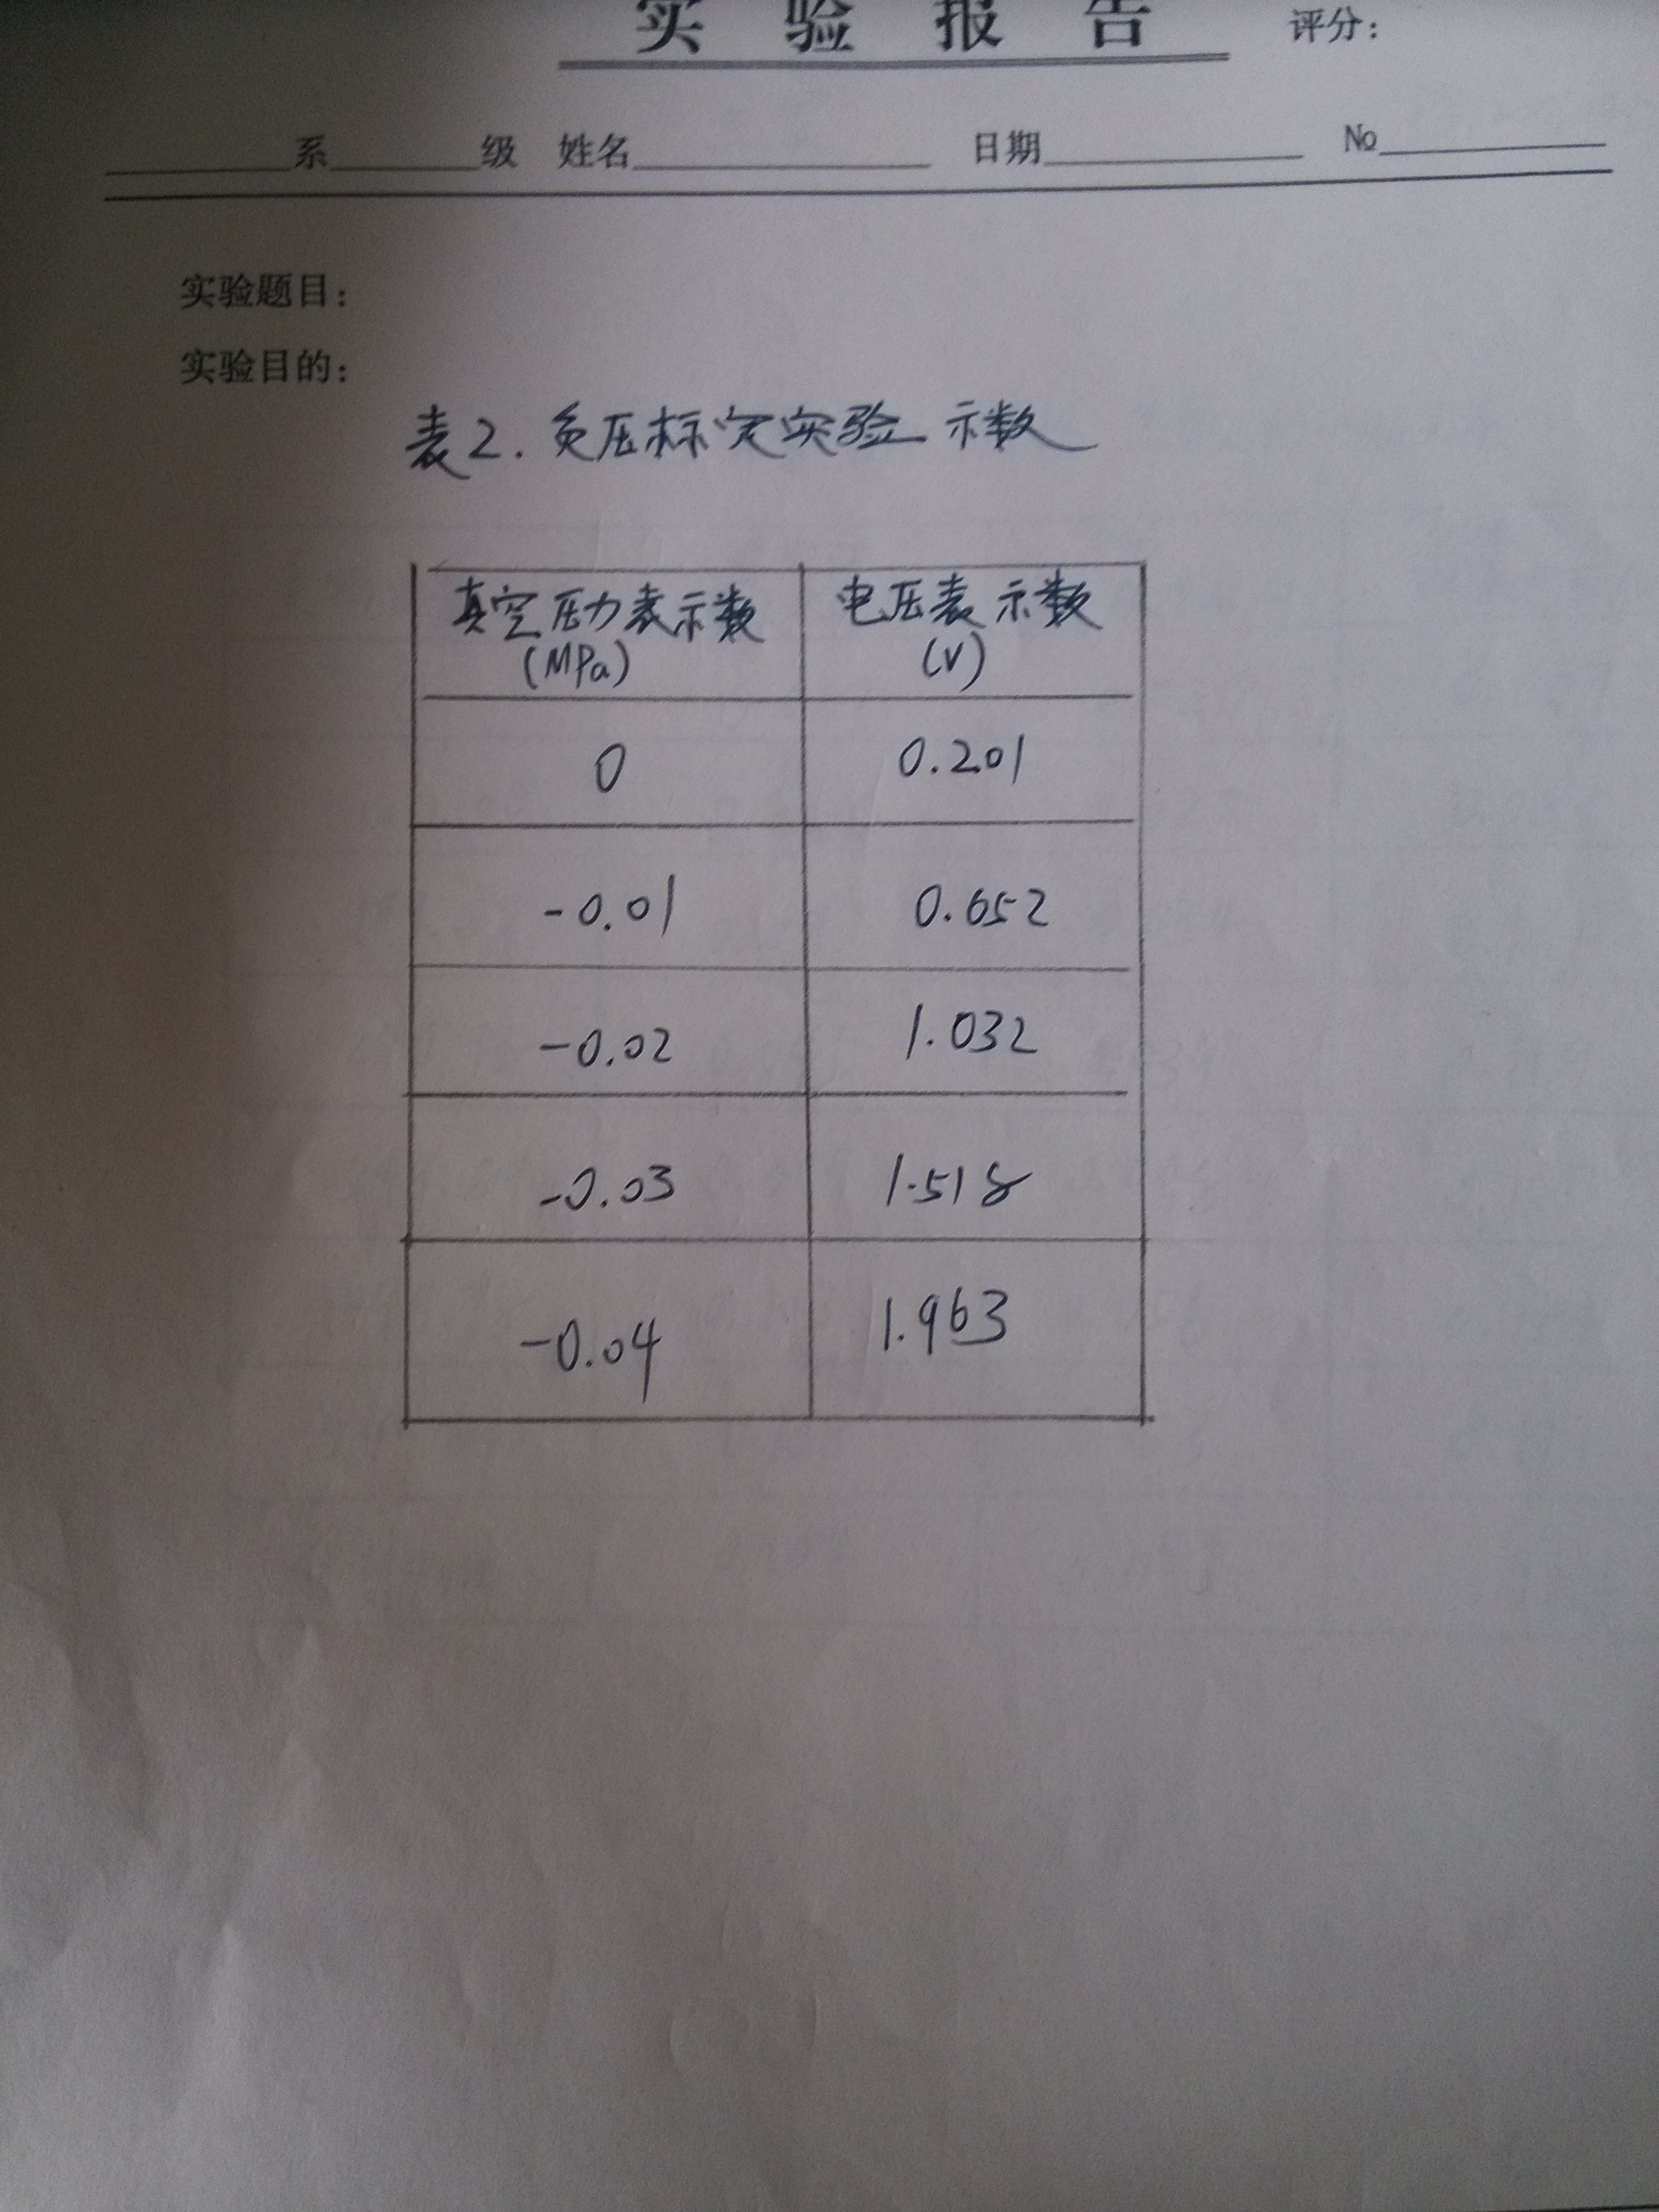 实验报告 评分：
系 级 姓名 日期 №
实验题目：
实验目的：
表2. 负压标定实验示数
真空压力表示数 电压表示数
(MPa) (V)
0 0.201
-0.01 0.652
-0.02 1.032
-0.03 1.518
-0.04 1.963